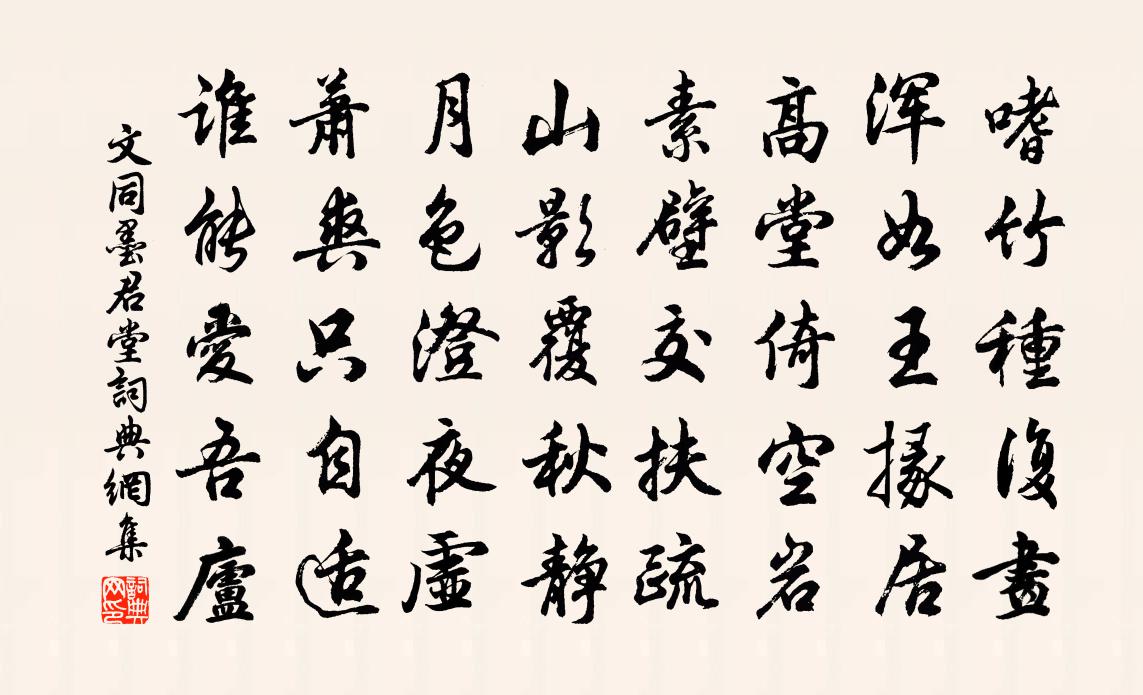 嗜竹種復畫
浑如王掾居
高堂倚空岩
素壁交扶疏
山影覆秋静
月色澄夜虚
蕭爽只自适
誰能愛吾廬
文同墨君堂詞典網集
詞典网印